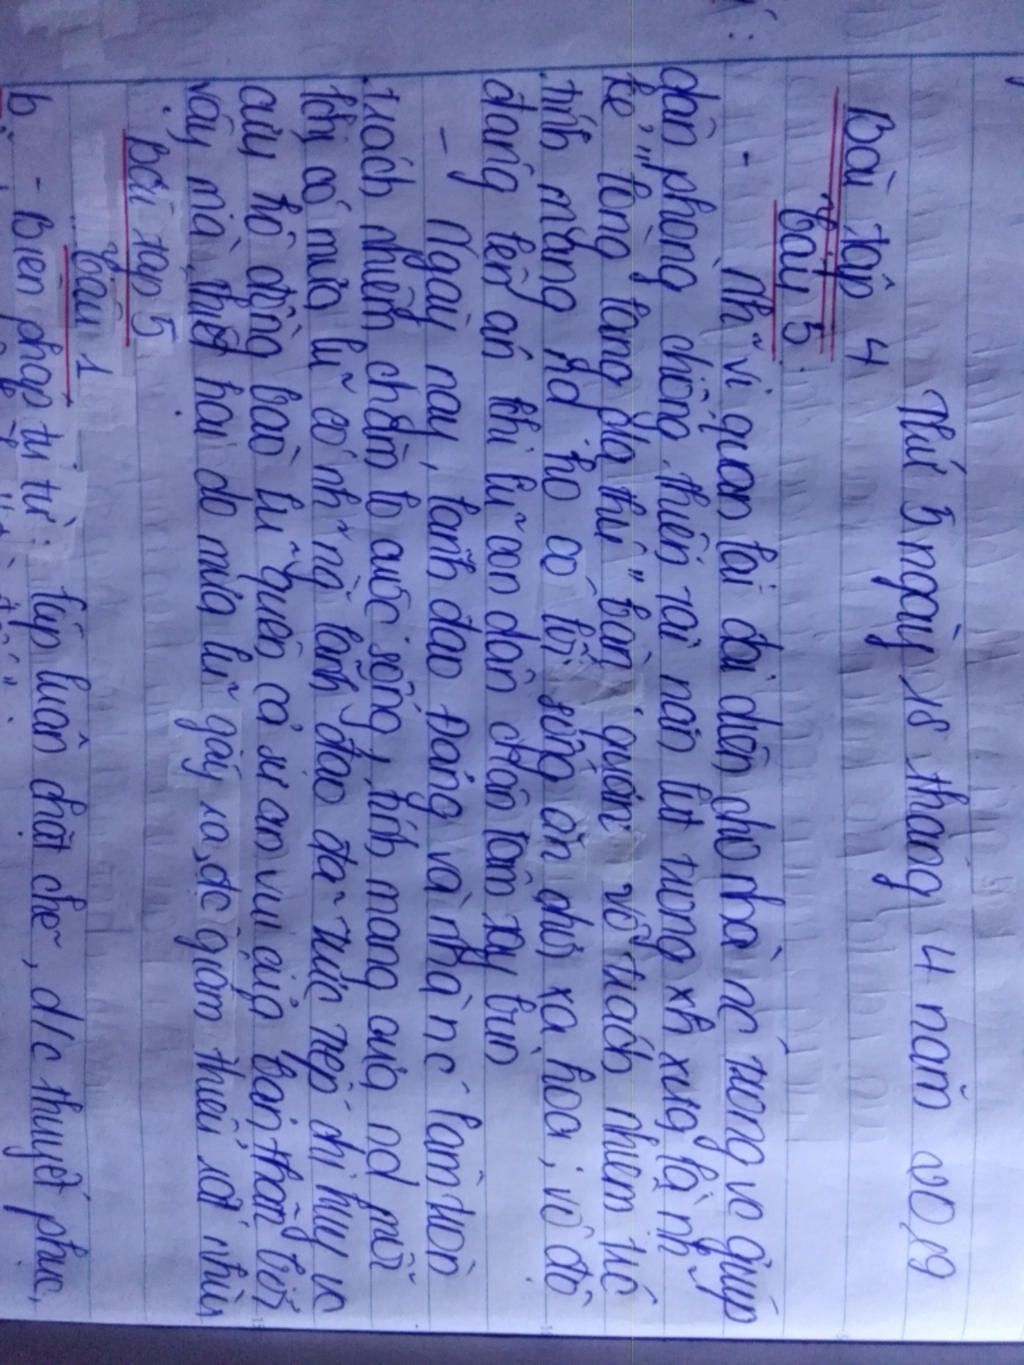 Thứ 5 ngày 18 tháng 4 năm 2019
Bài tập 4
Câu 5
- Nh~ vị quan lại đại diện cho nhà nc' trong vc giúp
dân phòng chống thiên tai nạn lụt trong xh xưa là nh~
kẻ " lòng lang dạ thú" bàn quan vô trách nhiệm trc'
tính mạng nd họ có lối sống ăn chơi xa hoa, vô độ
đáng lên án khi lũ con dân chân lấm tay bùn
- Ngày nay, lãnh đạo Đảng và nhà nc' làm tròn
trách nhiệm chăm lo cuộc sống, tính mạng của nd mỗi
khi có mưa lũ có nh~ ng` lãnh đạo đã trực tiếp chỉ huy vc
cứu hộ chống bão lũ quên cả sự an vui của bản thân bởi
vậy mà thiệt hại do mưa lũ gây ra đc giảm thiểu rất nhiều
Bài tập 5
Câu 1
b, - Biện pháp tu từ: lập luận chặt chẽ, d/c thuyết phục,